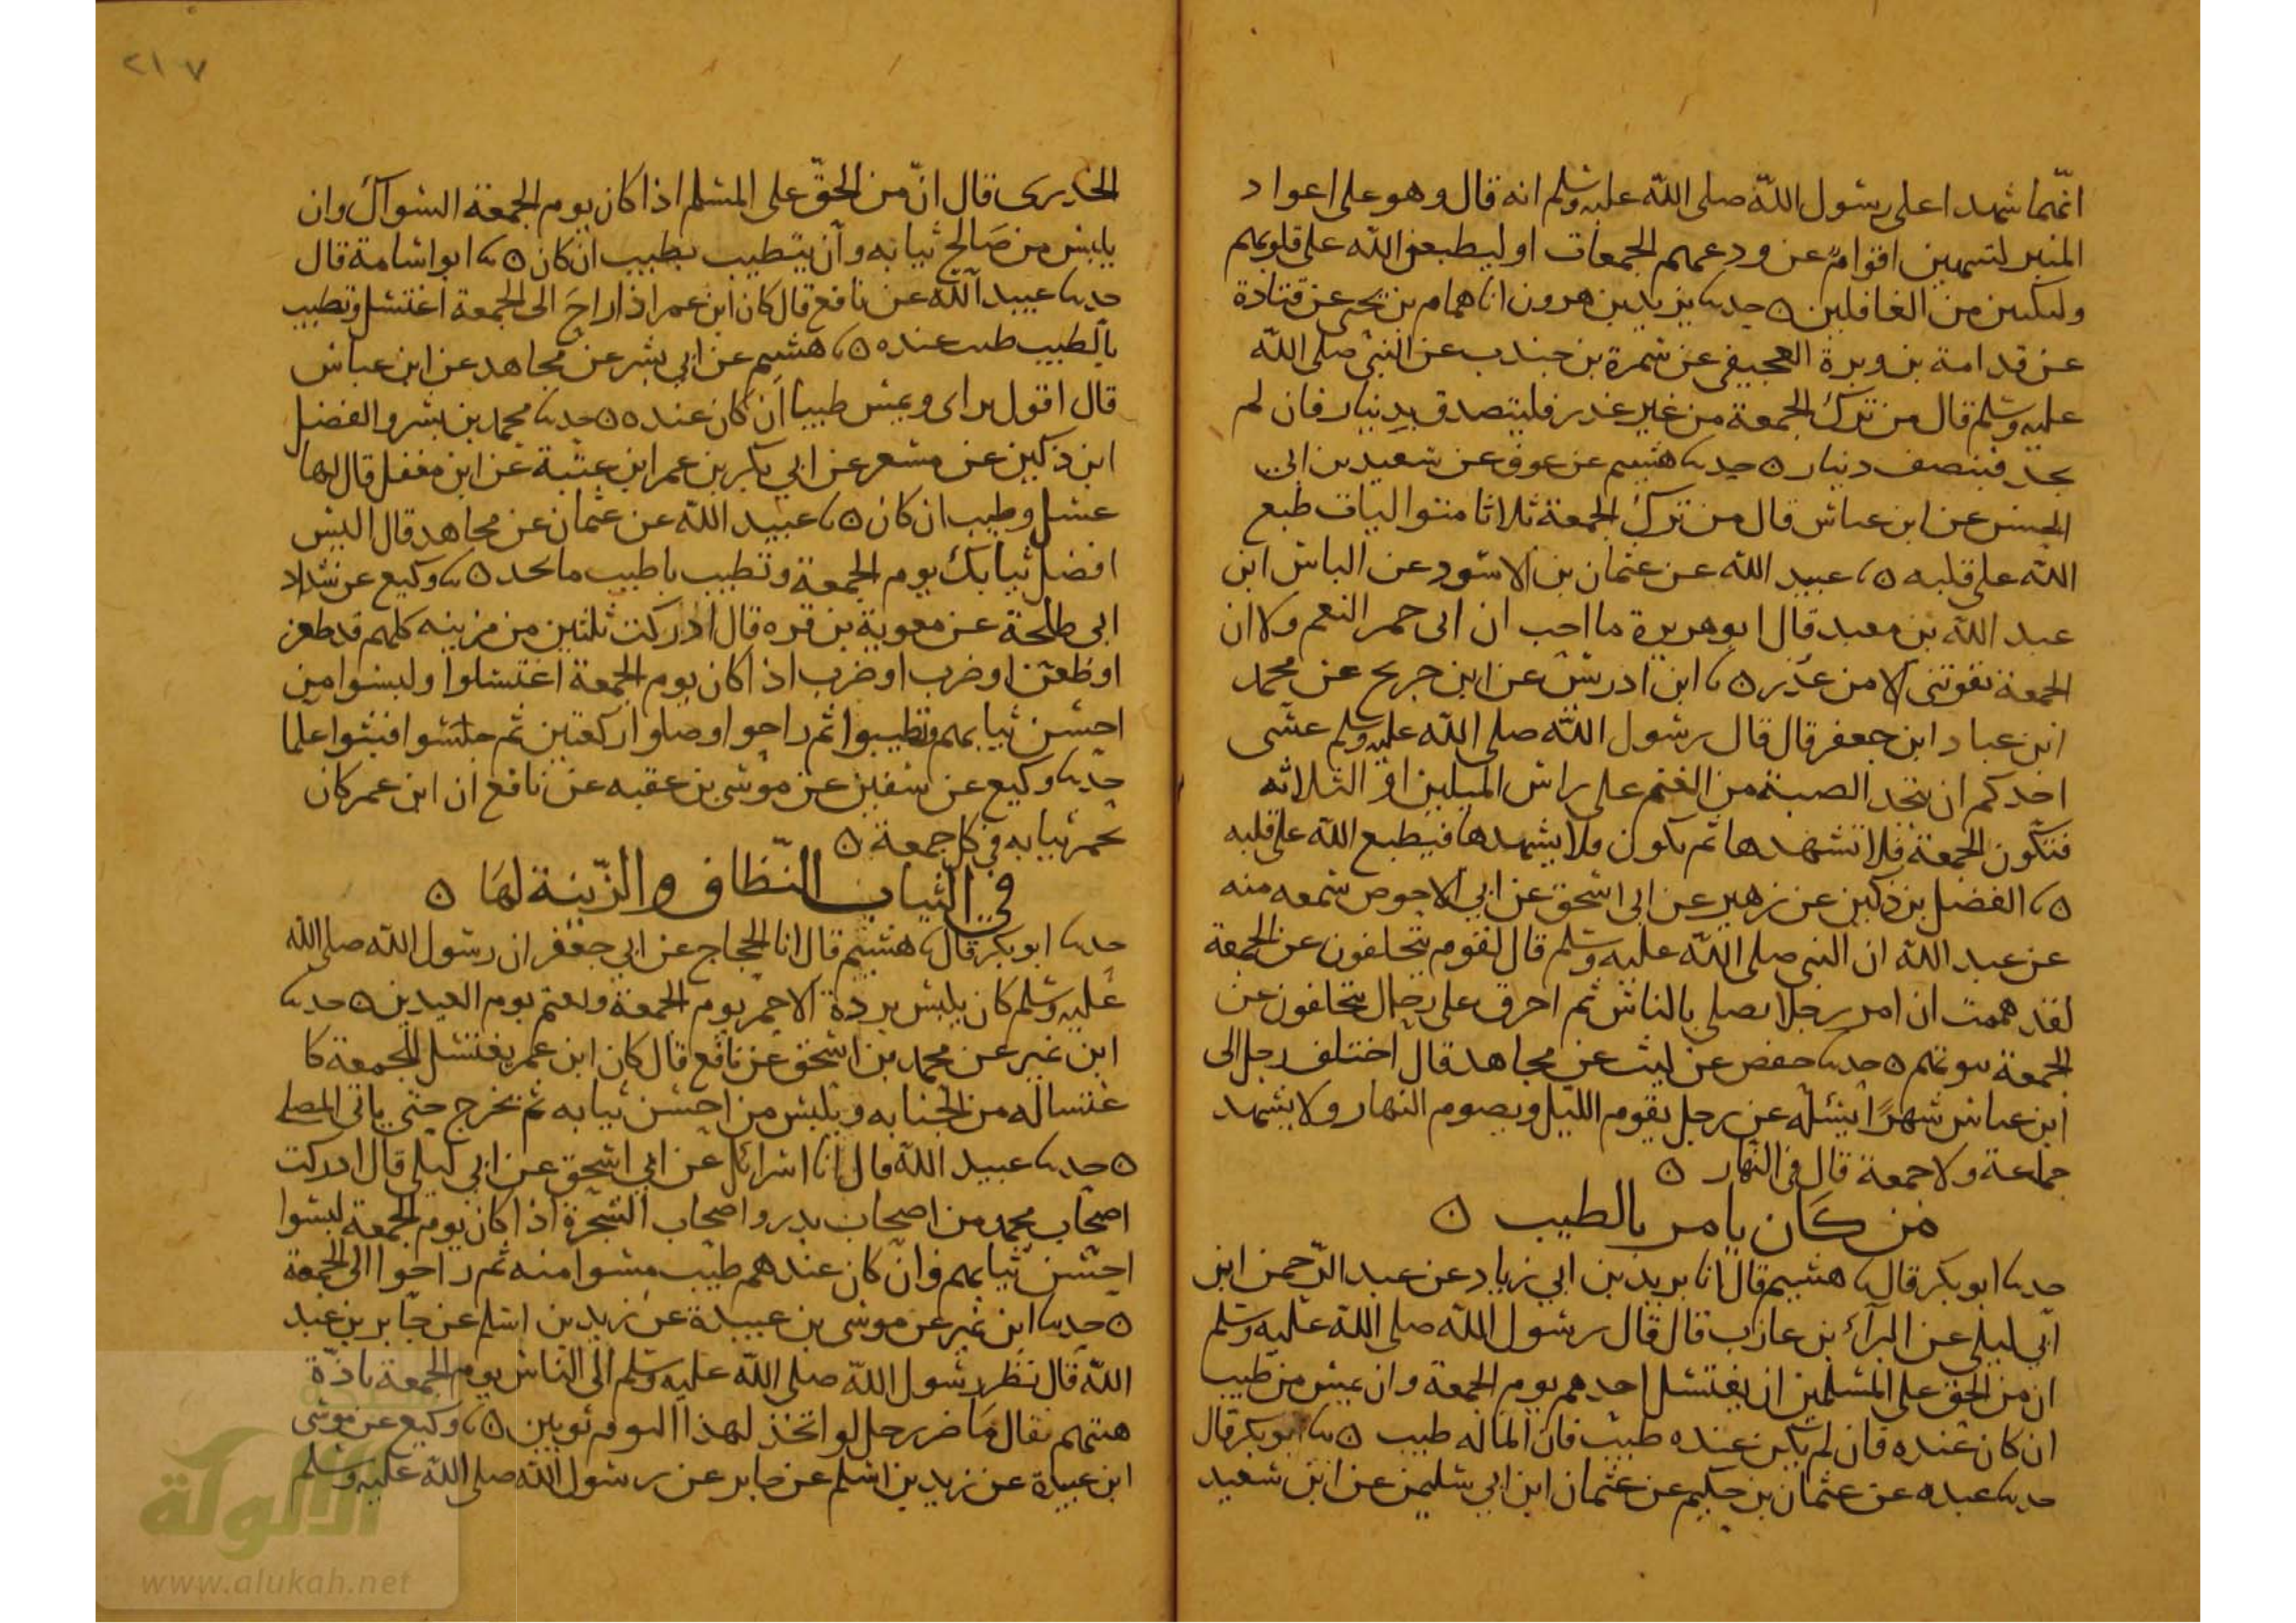 انهما شهدا على رسول الله صلى الله عليه وسلم انه قال وهو على اعواد
المنبر لينتهين اقوام عن ودعهم الجمعات او ليطبعن الله على قلوبهم
وليكبن من الغافلين ه حدثنا يزيد بن هرون انا همام بن يحيى عن قتادة
عن قدامة بن وبرة العجيفي عن سمرة بن جندب عن النبي صلى الله
عليه وسلم قال من ترك الجمعة من غير عذر فليتصدق بدينار فان لم
يجد فبنصف دينار ه حدثنا هشيم عن عوف عن سعيد بن ابي
الحسن عن ابن عباس قال من ترك الجمعة ثلاثا متواليات طبع
الله على قلبه ه ثنا عبيد الله عن عثمان بن الاسود عن الياس ابن
عبد الله بن معبد قال ابو هريرة ما احب ان لى حمر النعم ولا ان
الجمعة تفوتني الا من عذر ه ثنا ابن ادريس عن ابن جريج عن محمد
ابن عباد ابن جعفر قال قال رسول الله صلى الله عليه وسلم عسى
احدكم ان يتخذ الصبة من الغنم على راس الميلين او الثلاثه
فتكون الجمعة فلا تشهدها ثم تكون فلا يشهدها فيطبع الله على قلبه
ه ثنا الفضل بن دكين عن زهير عن ابى اسحق عن ابي الاحوص سمعه منه
عن عبد الله ان النبي صلى الله عليه وسلم قال لقوم يتخلفون عن الجمعة
لقد هممت ان امر رجلا يصلي بالناس ثم احرق على رجال يتخلفون عن
الجمعة بيوتهم ه حدثنا حفص عن ليث عن مجاهد قال اختلف رجل الى
ابن عباس شهرا يسئله عن رجل يقوم الليل ويصوم النهار ولا يشهد
جماعة ولا جمعة قال في النهار ه
من كان يامر بالطيب ه
حدثنا ابو بكر قال ثنا هشيم قال انا يزيد بن ابي زياد عن عبد الرحمن ابن
ابي ليلى عن البراء بن عازب قال قال رسول الله صلى الله عليه وسلم
ان من الحق على المسلمين ان يغتسل احدهم يوم الجمعة وان يمس من طيب
ان كان عنده فان لم يكن عنده طيب فان الما له طيب ه ثنا ابو بكر قال
حدثنا عبده عن عثمان بن حكيم عن عثمان ابن ابي سليمن عن ابن سعيد
٢١٧
الخديرى قال ان من الحق على المسلم اذا كان يوم الجمعة السواك وان
يلبس من صالح ثيابه وان يتطيب بطيب ان كان ه ثنا ابو اسامة قال
حدثنا عبيد الله عن نافع قال كان ابن عمر اذا راح الى الجمعة اغتسل وتطيب
بالطيب طيب عنده ه ثنا هشيم عن ابي بشر عن مجاهد عن ابن عباس
قال اقول براى ويمس طيبا ان كان عنده ه حدثنا محمد بن بشر والفضل
ابن دكين عن مسعر عن ابي بكر بن عمر ابن عتبة عن ابن مغفل قال لها
غسل وطيب ان كان ه ثنا عبيد الله عن عثمان عن مجاهد قال البس
افضل ثيابك يوم الجمعة وتطيب باطيب ما تجد ه ثنا وكيع عن شداد
ابي طلحة عن معوية بن قره قال ادركت ثلثين من مزينه كلهم قد طعن
او طعن او ضرب او ضرب اذا كان يوم الجمعة اغتسلوا ولبسوا من
احسن ثيابهم وتطيبوا ثم راحوا وصلوا ركعتين ثم جلسوا فبثوا علما
حدثنا وكيع عن سفين عن موسى بن عقبه عن نافع ان ابن عمر كان
يحمر ثيابه في كل جمعة ه
في الثياب النظاف والزينة لها ه
حدثنا ابو بكر قال ثنا هشيم قال انا الحجاج عن ابي جعفر ان رسول الله صلى الله
عليه وسلم كان يلبس بردة الاحمر يوم الجمعة ويعتم يوم العيدين ه حدثنا
ابن نمير عن محمد بن اسحق عن نافع قال كان ابن عمر يغتسل للجمعة كا
غتساله من الجنابه ويلبس من احسن ثيابه ثم يخرج حتى ياتى المصلى
ه حدثنا عبيد الله قال انا اسرائل عن ابي اسحق عن ابي ليلى قال ادركت
اصحاب محمد من اصحاب بدر واصحاب الشجرة اذا كان يوم الجمعة لبسوا
احسن ثيابهم وان كان عندهم طيب مسوا منه ثم راحوا الى الجمعة
ه حدثنا ابن نمير عن موسى بن عبيدة عن زيد بن اسلم عن جابر بن عبد
الله قال نظر رسول الله صلى الله عليه وسلم الى الناس يوم الجمعة باذة
هيئتهم فقال ما ضر رجل لو اتخذ لهذا اليوم ثوبين ه ثنا وكيع عن موسى
ابن عبيدة عن زيد بن اسلم عن جابر عن رسول الله صلى الله عليه وسلم
الألوكة
www.alukah.net